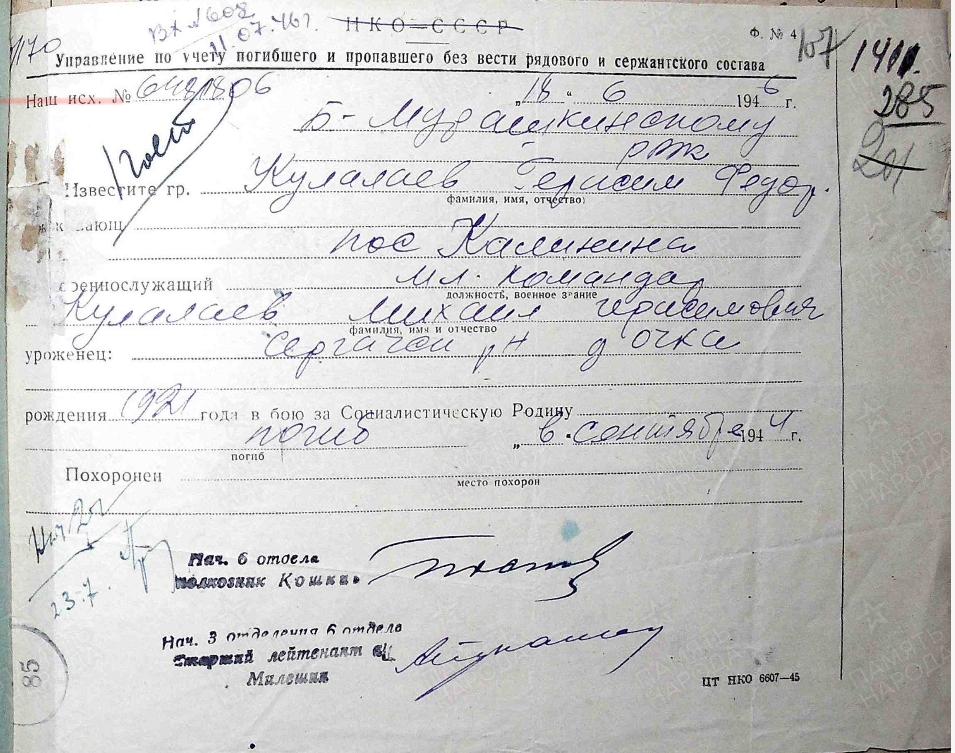 Вх №608
11.07.46г.
НКО СССР
Ф. № 4
107
1411.
285
201
Управление по учету погибшего и пропавшего без вести рядового и сержантского состава
Наш исх. № „18“ 6 1946 г.
Б-Мурашкинскому
рвк
Известите гр. Кулалаев Герасим Федор.
фамилия, имя, отчество)
пос Калинина
военнослужащий мл. командир
должность, военное звание
Кулалаев Михаил Герасимович
фамилия, имя и отчество
уроженец: Сергачск рн д Очка
рождения 1921 года в бою за Социалистическую Родину
погиб „в“ сентябре 1944 г.
погиб
Похоронен
место похорон
23.7.
Нач. 6 отдела
полковник Кошкин
Нач. 3 отделения 6 отдела
Старший лейтенант
Милешин
85
ЦТ НКО 6607—45